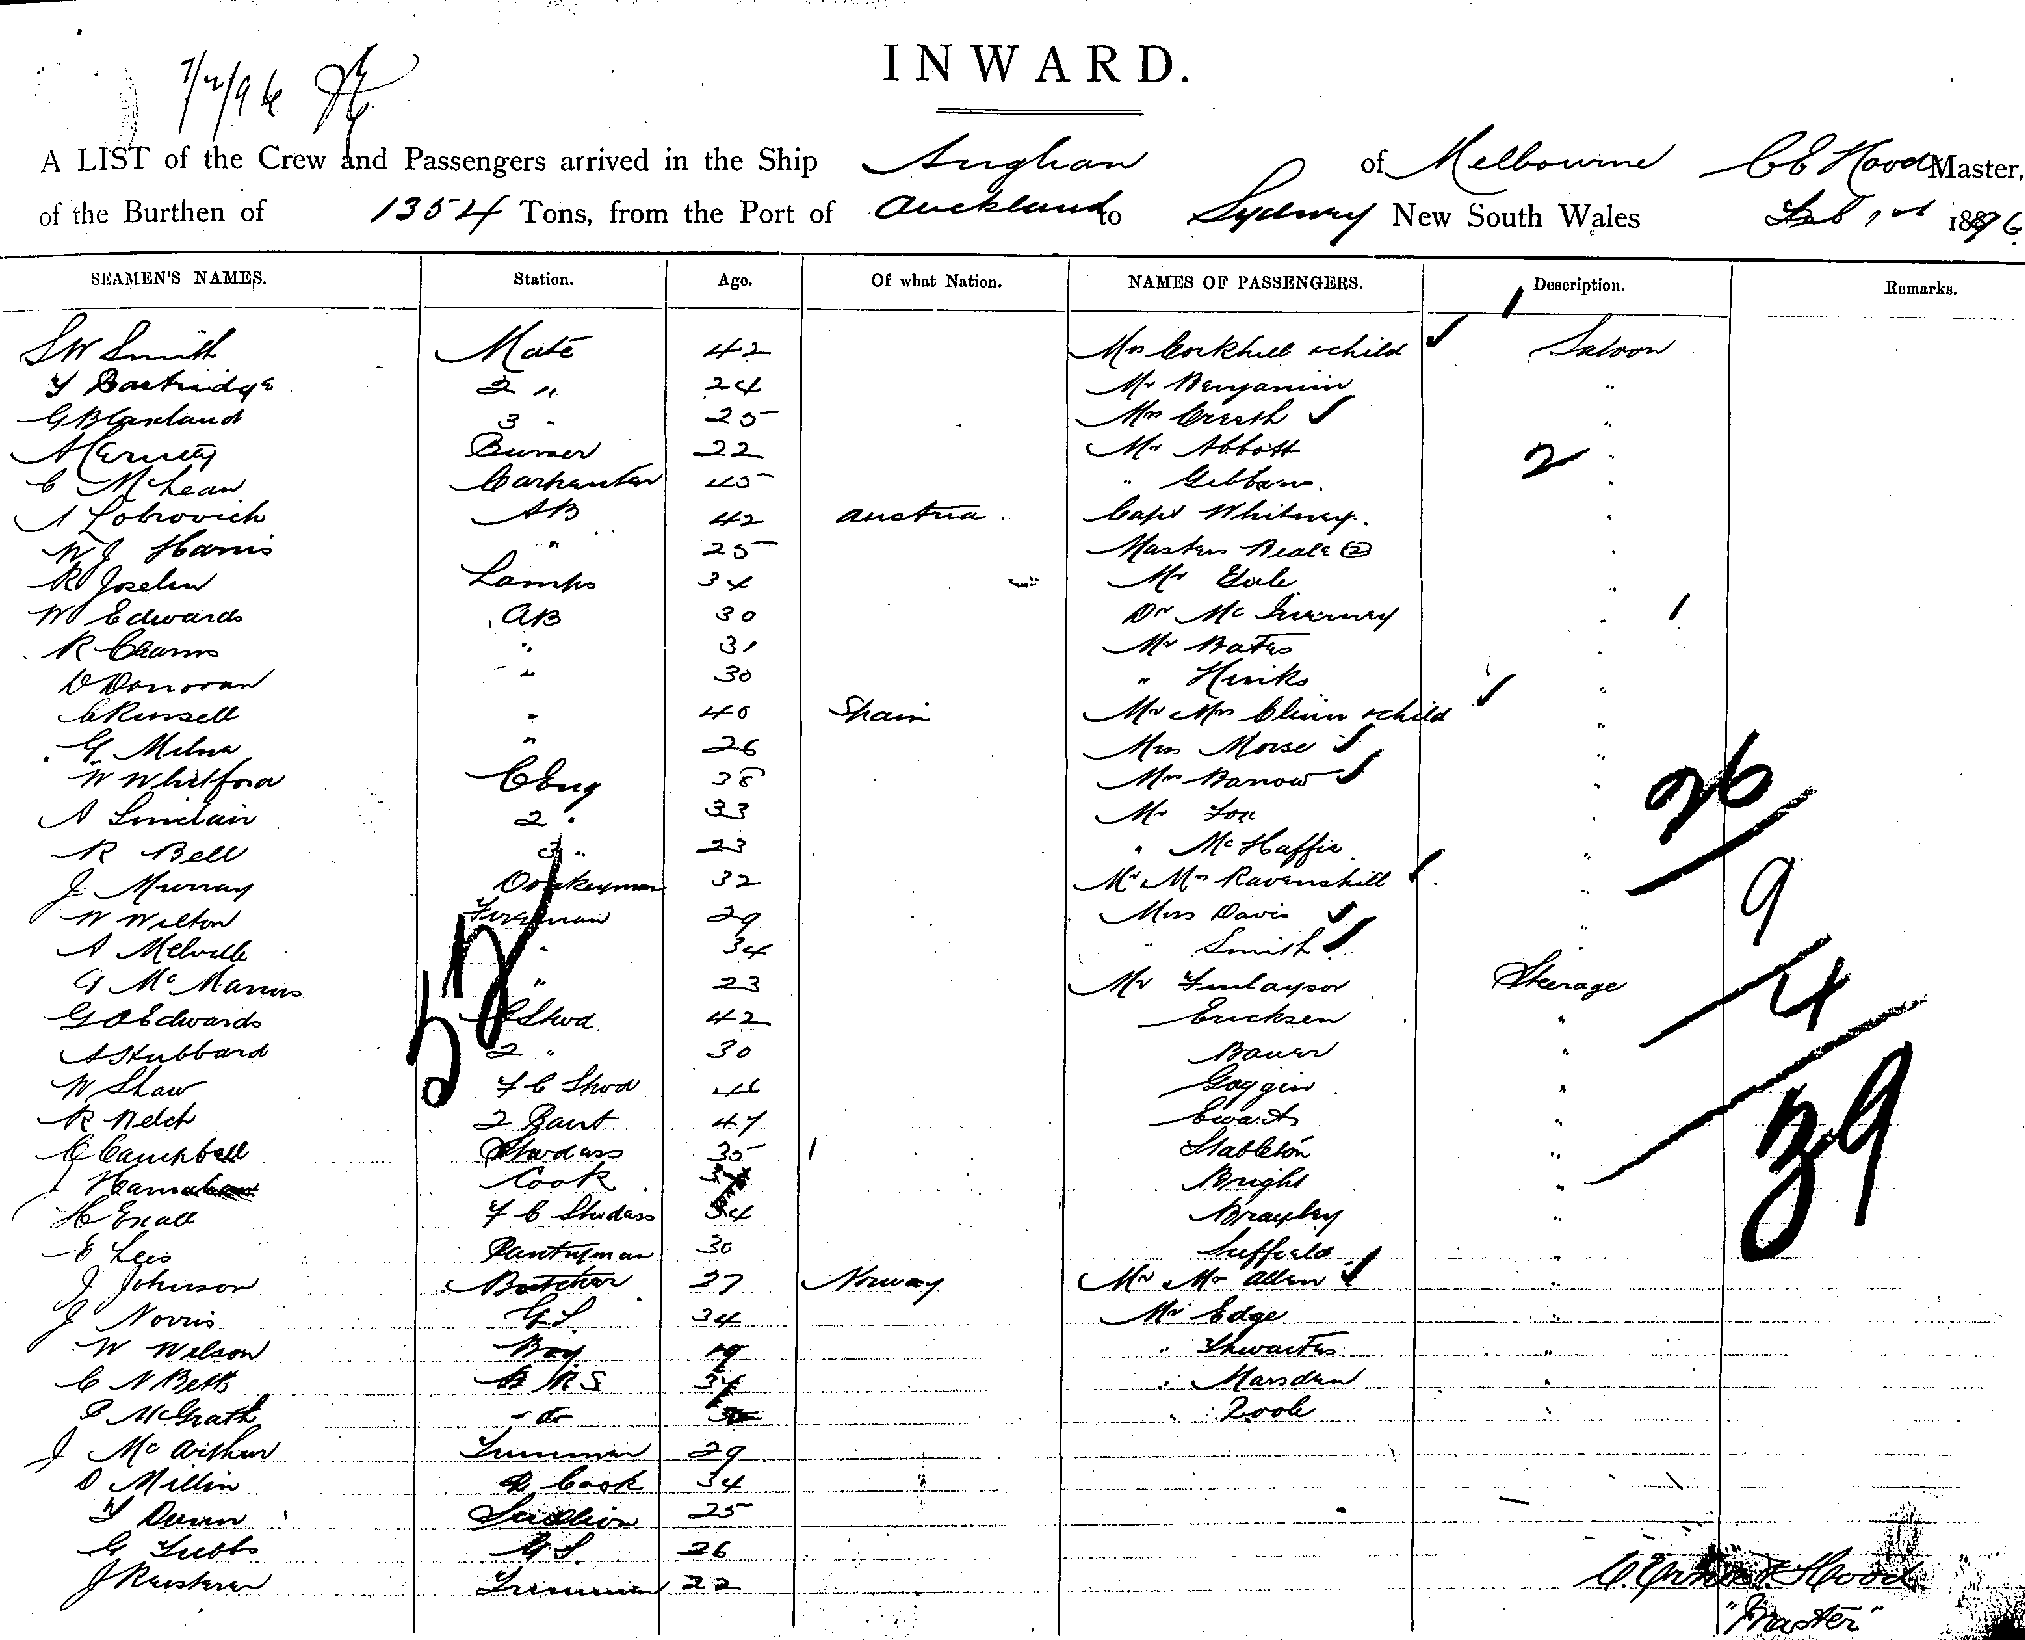 INWARD.
7/2/96
A LIST of the Crew and Passengers arrived in the Ship Anglian of Melbourne C E Hood Master,
of the Burthen of 1354 Tons, from the Port of Auckland to Sydney New South Wales Feb 1st 1896
SEAMEN'S NAMES. Station. Age. Of what Nation. NAMES OF PASSENGERS. Description. Remarks.
S W Smith Mate 42 Mrs Corkhill & child Saloon
24 Mr Benjamin "
3 " 25 Mrs "
22 Mr Abbott " 2
C McLean Carpenter 45 " Gibbons "
A Lobrovich AB 42 Austria Capt Whitney "
W J Harris " 25 Masters Beale (2) "
R Joselin Lamps 34 Mr "
W Edwards AB 30 Dr McInerney " 1
R Cearns " 31 Mr Bates "
D Donovan " 30 " Hinks "
C Russell " 40 Spain Mr Mrs Clinn & child "
G Milne " 26 Mrs Morse "
W Whitford C Eng 38 Mrs Barrow " 26
A Sinclair 2 " 33 Mr Fox "
R Bell 3 " 23 " McHaffie "
J Murray Donkeyman 32 Mr Mrs Ravenshill " 9
W Wilton Fireman 29 Miss Davis "
A Melville " 34 " Smith "
G McManus " 23 Mr Finlayson Steerage 4
G A Edwards C Stwd 42 Ericksen "
A Hubbard 2 " 30 Bauer "
W Shaw F C Stwd 44 Goggin "
R Welch 2 Pant 47 Ewart "
C Campbell Stwdass 35 Stableton " 39
Cook Bright "
H F C Stwdass 34 "
E Lees Pantryman 30 Suffield "
J Johnson Butcher 27 Norway Mr Mrs Allen "
J Norris G S 34 Mr Edge "
W Wilson Boy 19 " Thwaites "
C N Betts B R S 34 " Marsden "
P McGrath do " Toole "
J McArthur Trimmer 29
D Millin Cook 34
Scullion 25
G Tubbs G S 26
J Trimmer 22
52
Hood
"Master"